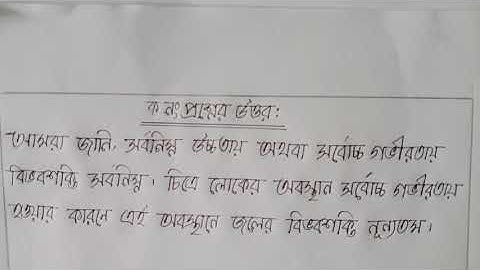 ক নং প্রশ্নের উত্তর:
আমরা জানি, সর্বনিম্ন উচ্চতায় অথবা সর্বোচ্চ গভীরতায়
বিভবশক্তি সর্বনিম্ন। চিত্রে লোকের অবস্থান সর্বোচ্চ গভীরতায়
হওয়ার কারনে এই অবস্থানে জলের বিভবশক্তি নূন্যতম।